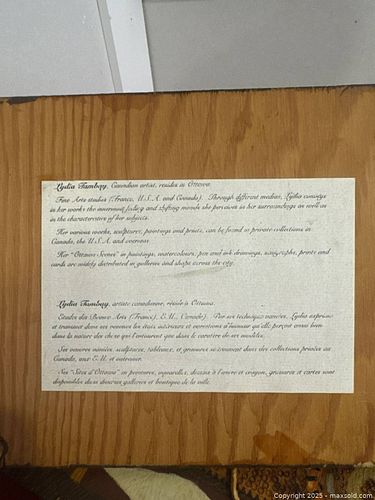 Lydia Tambay, Canadian artist, resides in Ottawa.
Fine Arts studies (France, U.S.A. and Canada). Through different medias, Lydia conveys
in her works the innermost feeling and shifting moods she perceives in her surroundings as well as
in the characters of her subjects.
Her various works, sculptures, paintings and prints, can be found in private collections in
Canada, the U.S.A. and overseas.
Her "Ottawa Scenes" in paintings, watercolours, pen and ink drawings, serigraphs, prints and
cards are widely distributed in galleries and shops across the city.
Lydia Tambay, artiste canadienne, réside à Ottawa.
Études des Beaux Arts (France), É.U., Canada). Par ses techniques variées, Lydia exprime
et transmet dans ses oeuvres les états intérieurs et
dans la nature des choses qui l'entourent que dans le caractère de ses modèles.
Ses oeuvres variées, sculptures, tableaux, et gravures se trouvent dans des collections privées au
Canada, aux É.U. et outremer.
Ses "Sites d'Ottawa" en peintures, aquarelles, dessins à l'encre et crayon, gravures et cartes sont
disponibles dans diverses galleries et boutiques de la ville.
Copyright 2025 - maxsold.com